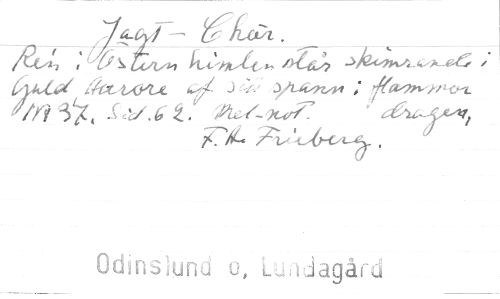 Jagt-Chör.
Ren i Östern himlen står skimrande i
Guld Aurore af sitt spann i flammor
N 37. Sid. 62. Mel-not. dragen,
F. A. Frieberg.
Odinslund o, Lundagård